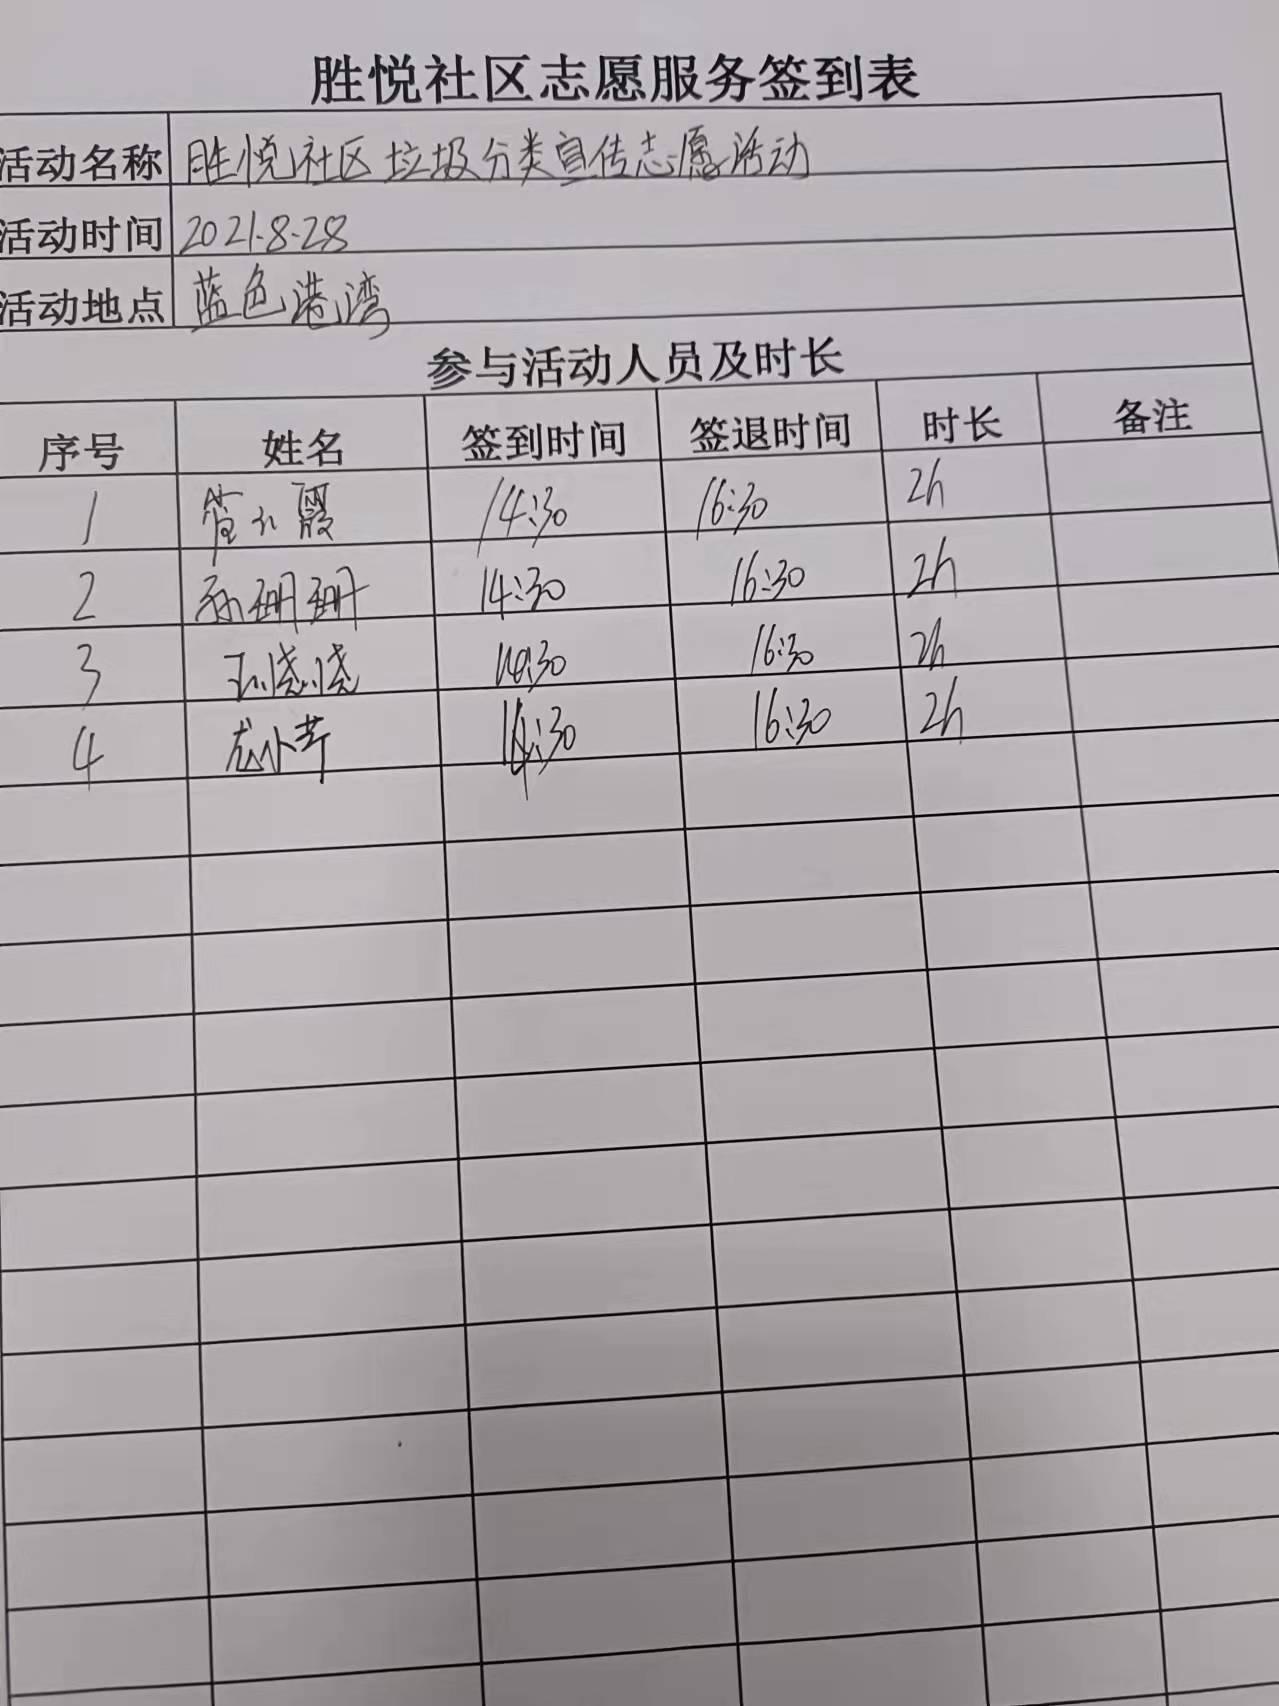 胜悦社区志愿服务签到表
活动名称 胜悦社区垃圾分类宣传志愿活动
活动时间 2021.8.28
活动地点 蓝色港湾
参与活动人员及时长
序号 姓名 签到时间 签退时间 时长 备注
1 14:30 16:30 2h
2 孙珊珊 14:30 16:30 2h
3 14:30 16:30 2h
4 14:30 16:30 2h